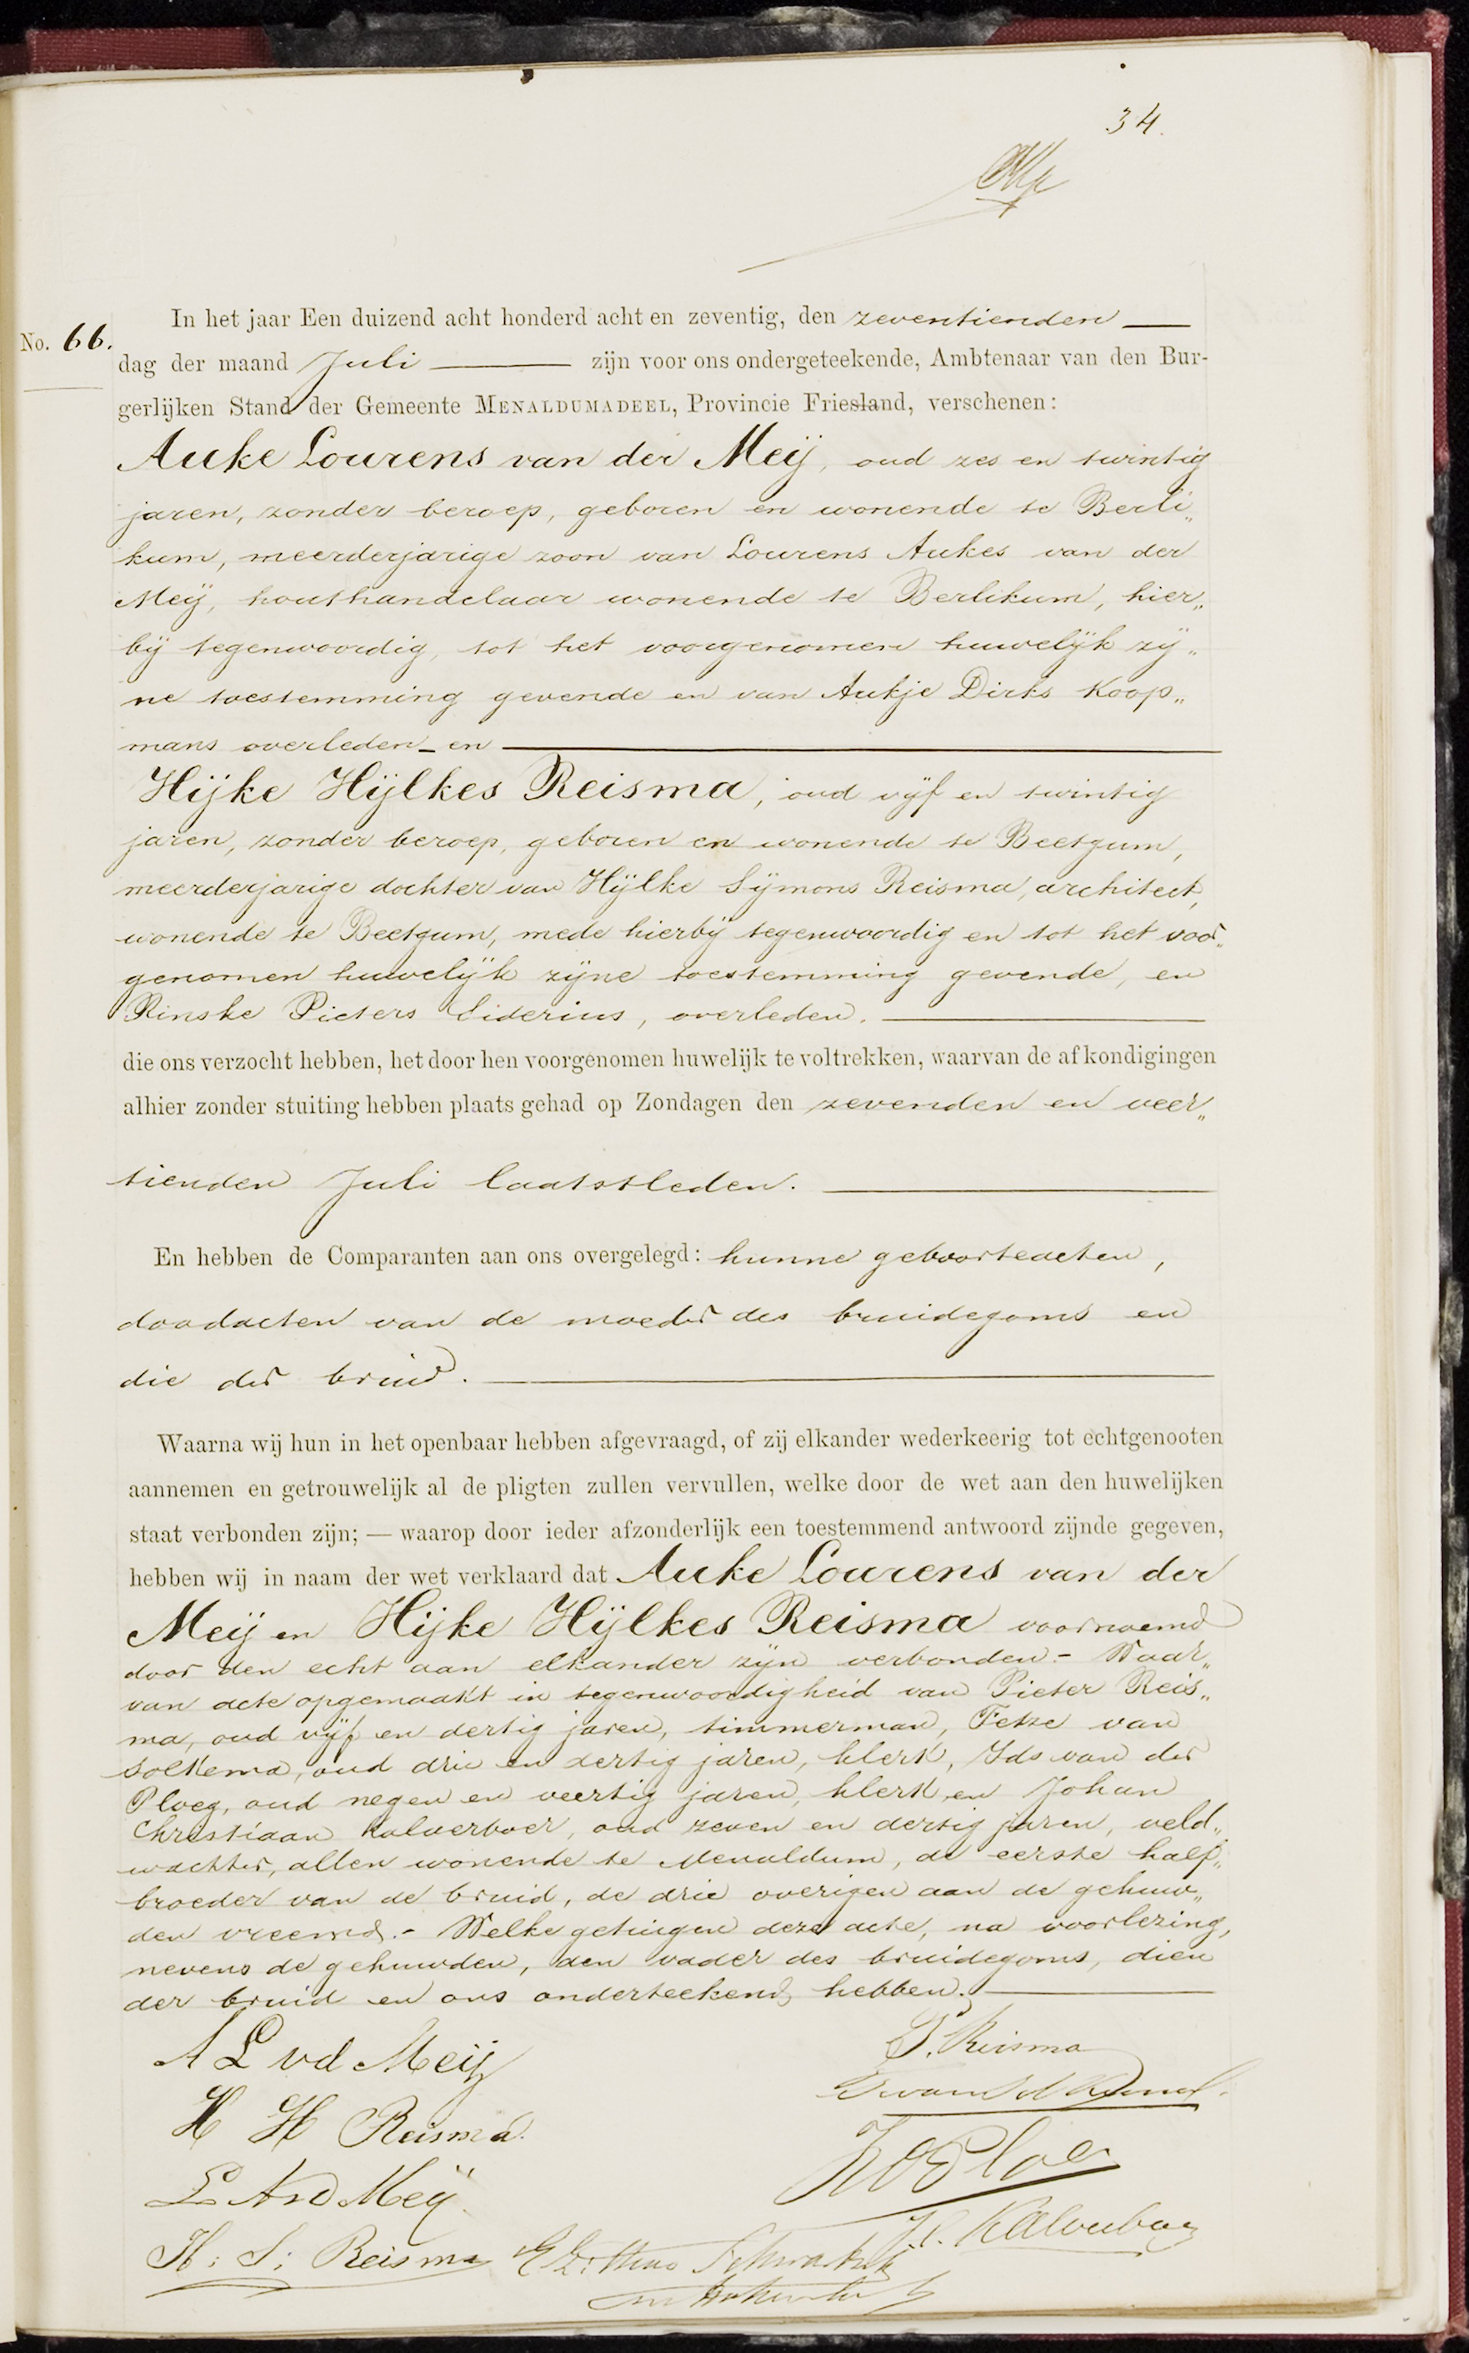 34.
No. 66.
In het jaar Een duizend acht honderd acht en zeventig, den zeventienden
dag der maand Juli zijn voor ons ondergeteekende, Ambtenaar van den Bur-
gerlijken Stand der Gemeente MENALDUMADEEL, Provincie Friesland, verschenen:
Auke Lourens van der Meij, oud zes en twintig
jaren, zonder beroep, geboren en wonende te Berli„
kum, meerderjarige zoon van Lourens Aukes van der
Meij, houthandelaar wonende te Berlikum, hier„
bij tegenwoordig, tot het voorgenomen huwelijk zij„
ne toestemming gevende en van Aukje Dirks Koop„
mans overleden - en
Hijke Hijlkes Reisma, oud vijf en twintig
jaren, zonder beroep, geboren en wonende te Beetgum,
meerderjarige dochter van Hijlke Sijmons Reisma, architect,
wonende te Beetgum, mede hierbij tegenwoordig en tot het voor„
genomen huwelijk zijne toestemming gevende, en
Rinske Pieters Siderius, overleden.
die ons verzocht hebben, het door hen voorgenomen huwelijk te voltrekken, waarvan de afkondigingen
alhier zonder stuiting hebben plaats gehad op Zondagen den zevenden en veer„
tienden Juli laatstleden.
En hebben de Comparanten aan ons overgelegd: hunne geboorteacten,
doodacten van de moeder des bruidegoms en
die der bruid.
Waarna wij hun in het openbaar hebben afgevraagd, of zij elkander wederkeerig tot echtgenooten
aannemen en getrouwelijk al de pligten zullen vervullen, welke door de wet aan den huwelijken
staat verbonden zijn; — waarop door ieder afzonderlijk een toestemmend antwoord zijnde gegeven,
hebben wij in naam der wet verklaard dat Auke Lourens van der
Meij en Hijke Hijlkes Reisma voornoemd
door den echt aan elkander zijn verbonden. - Waar„
van acte opgemaakt in tegenwoordigheid van Pieter Reis„
ma, oud vijf en dertig jaren, timmerman, Fetze van
Solkema, oud drie en dertig jaren, klerk, Ids van der
Ploeg, oud negen en veertig jaren, klerk en Johan
Christiaan Kalverboer, oud zeven en dertig jaren, veld„
wachter, allen wonende te Menaldum, de eerste half„
broeder van de bruid, de drie overigen aan de gehuw„
den vreemd. - Welke getuigen deze acte, na voorlezing,
nevens de gehuwden, den vader des bruidegoms, dien
der bruid en ons onderteekend hebben.
A L vd Meij
P. Reisma
H H Reisma.
L A vd Meij
J C. Kalverboer
H. S. Reisma